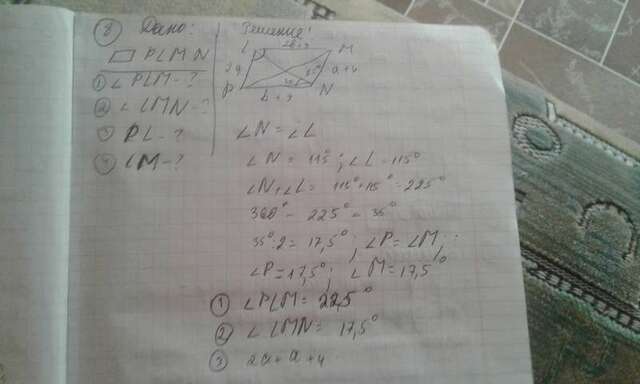 ⑧ Дано: Решение!
▱ PLMN
① ∠PLM-?
② ∠LMN-?
③ PL-?
④ LM-?
L M
2a a+4
P b+9 N
∠N = ∠L
∠N = 115° ; ∠L = 115°
∠N+∠L = 115°+115° = 225°
360° - 225° = 35°
35°:2 = 17,5° ; ∠P = ∠M
∠P = 17,5° ; ∠M = 17,5°
① ∠PLM = 22,5°
② ∠LMN = 17,5°
③ 2a + a + 4